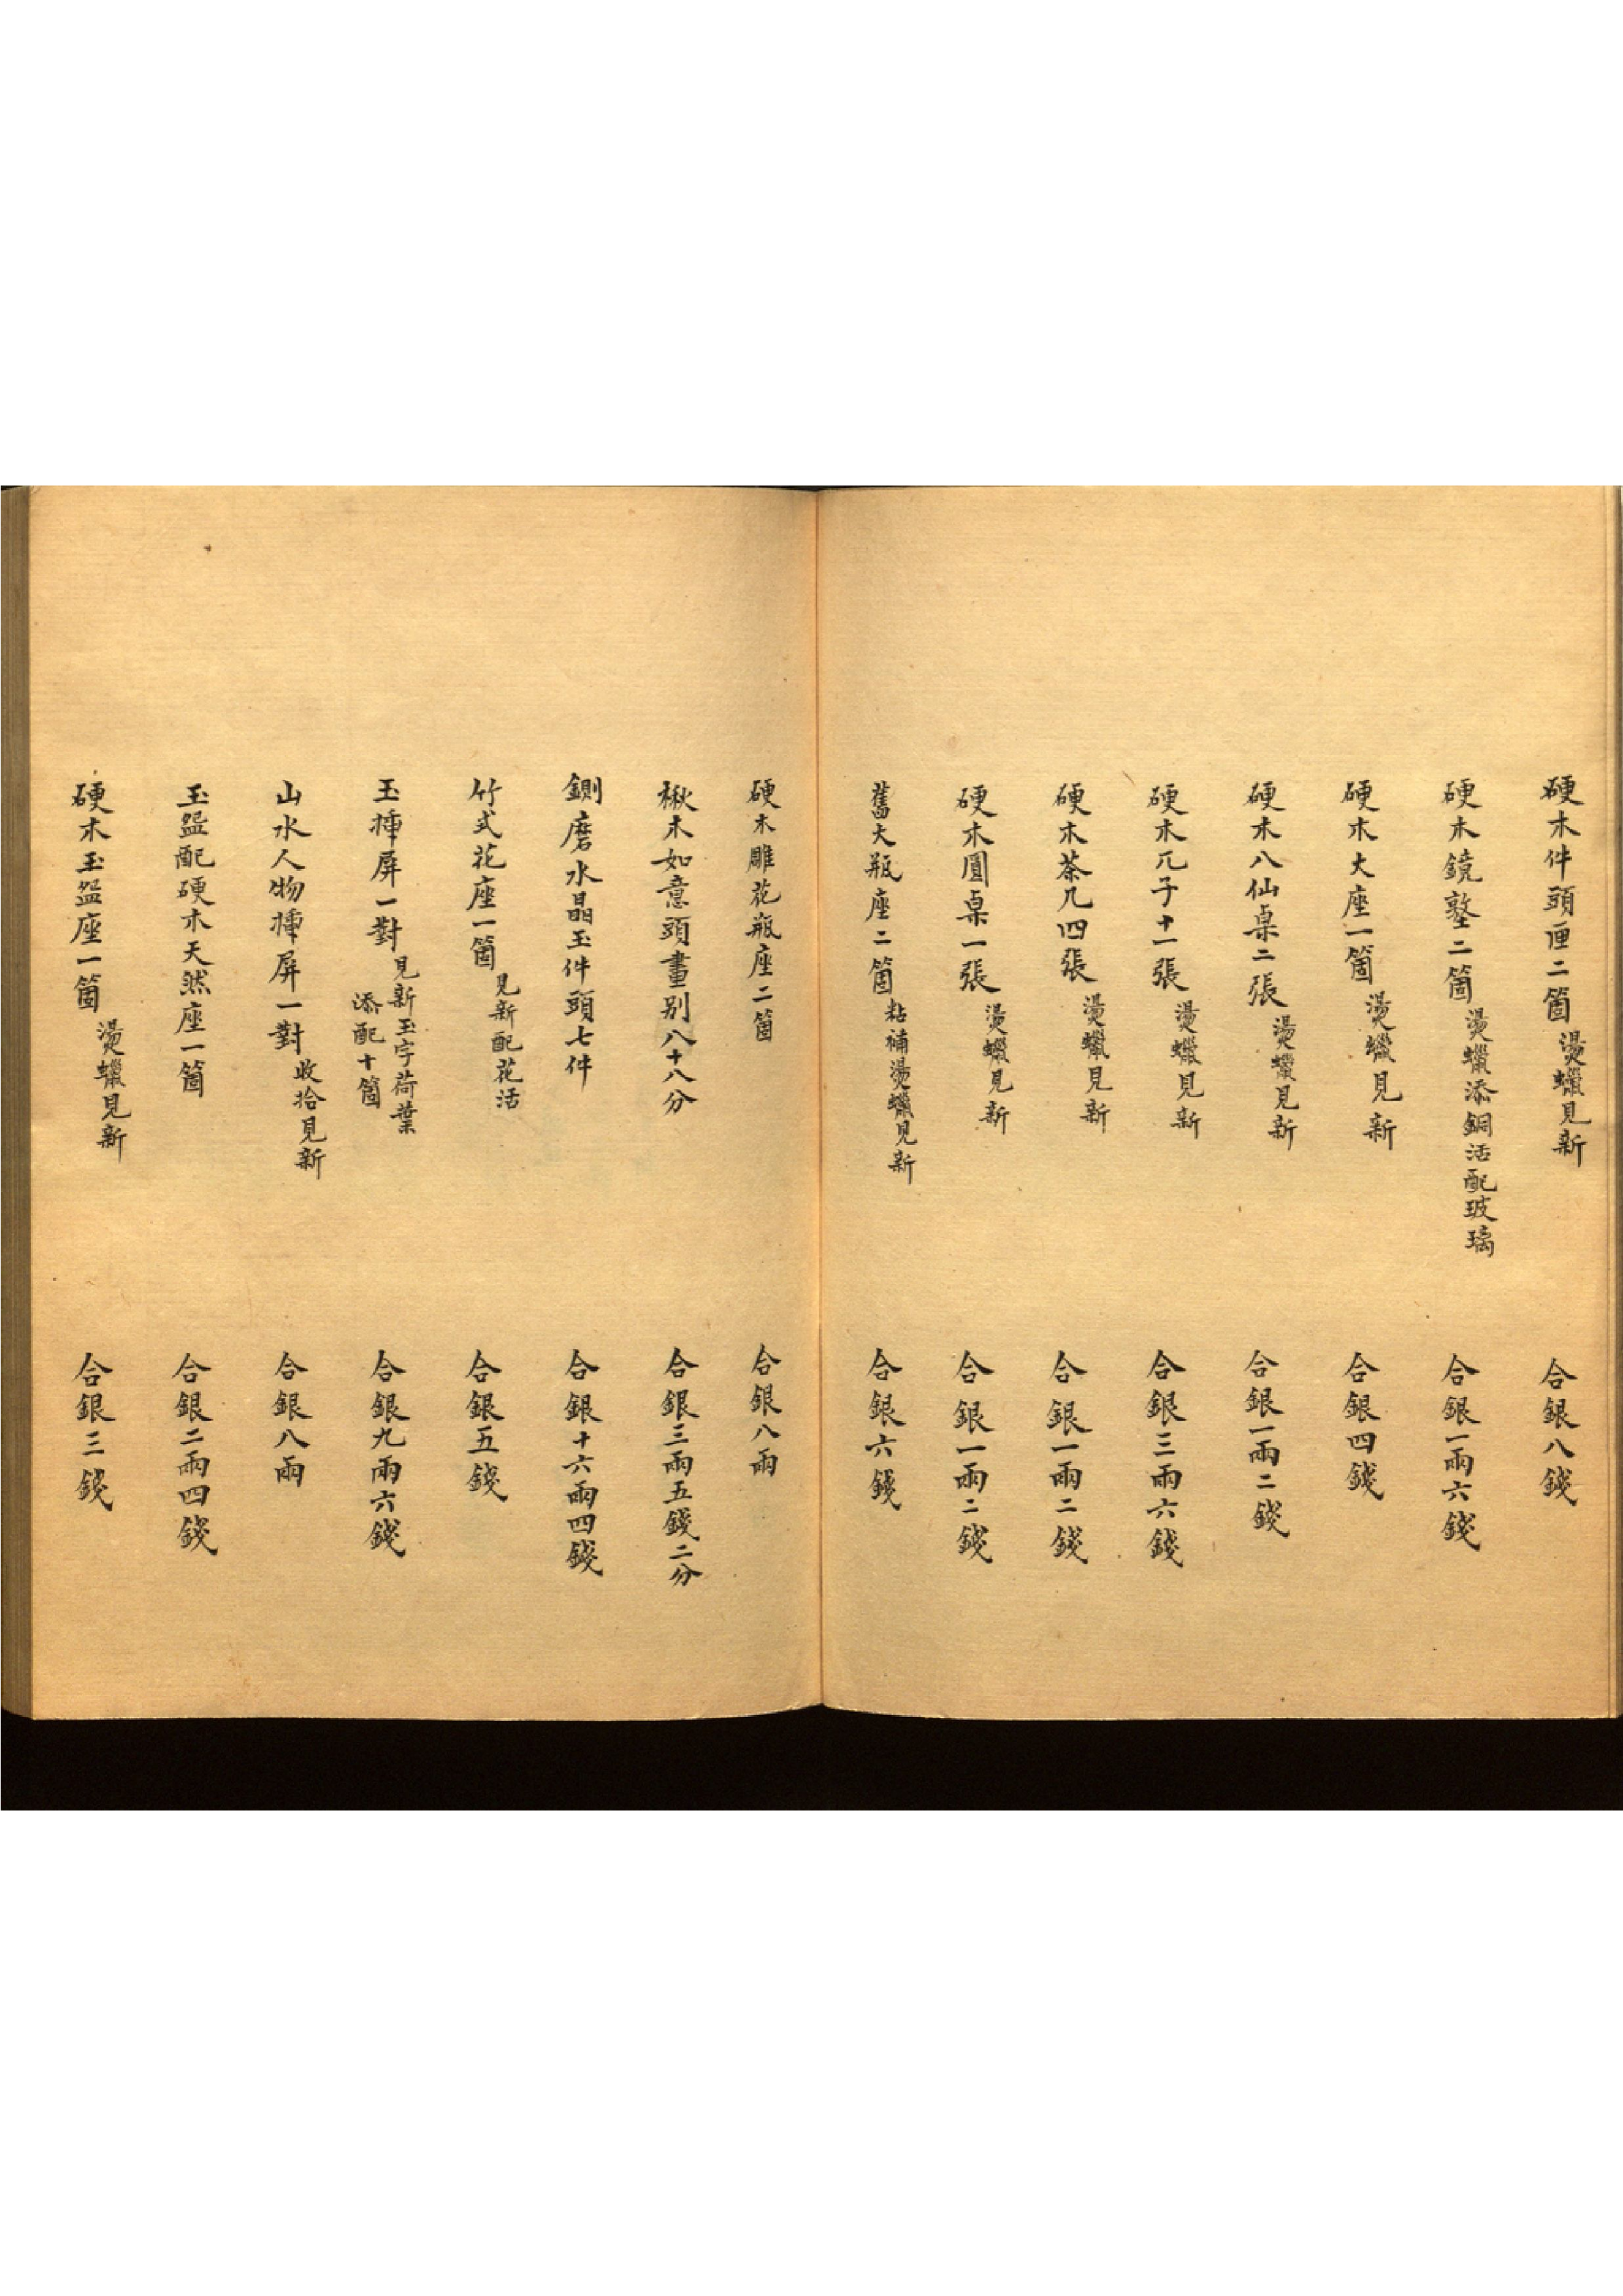 硬木件頭匣二箇燙蠟見新 合銀八錢
硬木鏡整二箇燙蠟添銅活配玻璃 合銀一兩六錢
硬木大座一箇燙蠟見新 合銀四錢
硬木八仙桌二張燙蠟見新 合銀一兩二錢
硬木兀子十一張燙蠟見新 合銀三兩六錢
硬木茶几四張燙蠟見新 合銀一兩二錢
硬木圓桌一張燙蠟見新 合銀一兩二錢
舊大瓶座二箇粘補燙蠟見新 合銀六錢
硬木雕花瓶座二箇 合銀八兩
楸木如意頭畫別八十八分 合銀三兩五錢二分
鍘磨水晶玉件頭七件 合銀十六兩四錢
竹式花座一箇見新配花活 合銀五錢
玉揷屏一對見新玉字荷葉添配十箇 合銀九兩六錢
山水人物揷屏一對收拾見新 合銀八兩
玉盌配硬木天然座一箇 合銀二兩四錢
硬木玉盌座一箇燙蠟見新 合銀三錢